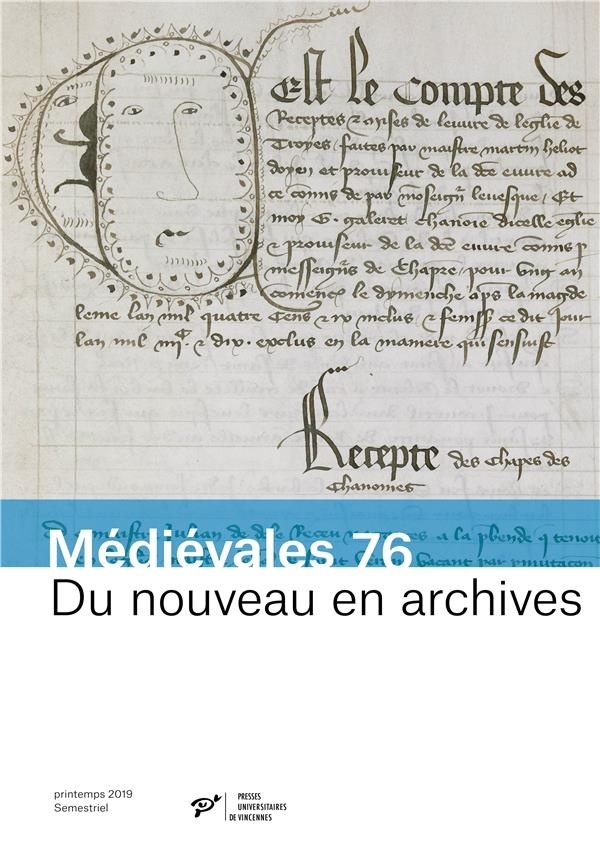 C Est le compte des
Receptes & mises de leuure de leglise de
Troyes faites par maistre martin heliot
doyen et prouiseur de la dce euure ad
ce comis de par moseignr leuesque / Et
moy G. galeret chanoie dicelle eglise
& prouiseur de la dce euure comis p
messeigns de Chapre / pour ung an
comenc le dymenche aps la magde
leme lan mil quatre Cens & ix inclus & feniss ce dit Jour
lan mil iiiic & dix. exclus en la maniere qui sensuist
Recepte des Chapes des
Chanoines
Médiévales 76
Du nouveau en archives
printemps 2019
Semestriel
PRESSES
UNIVERSITAIRES
DE VINCENNES